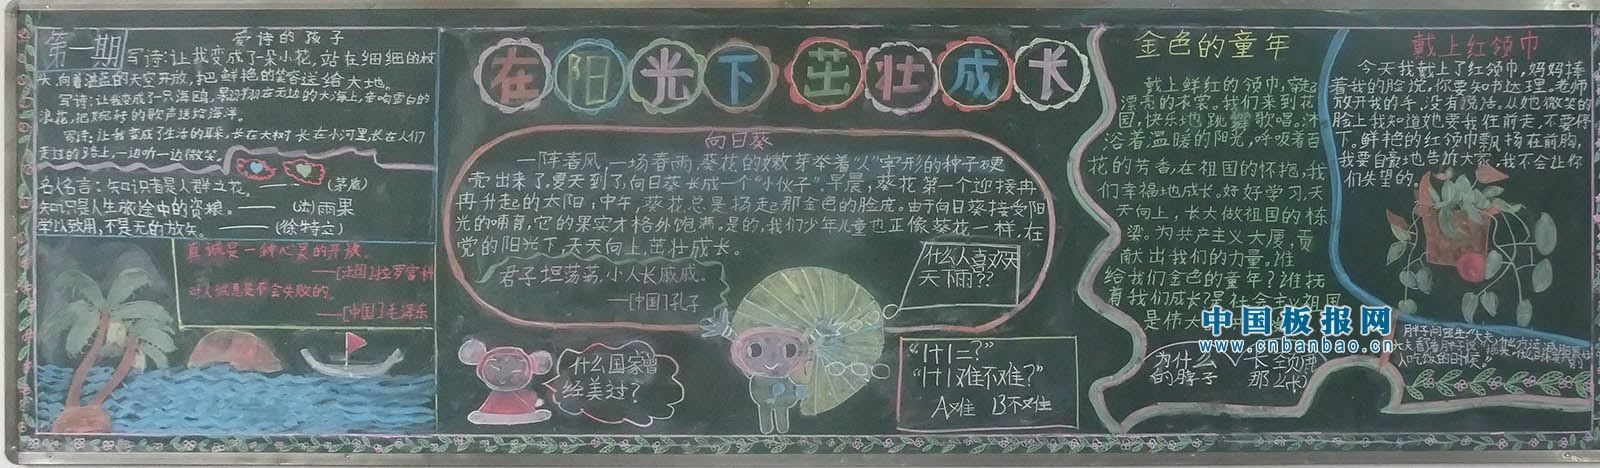 第一期
爱诗的孩子
写诗:让我变成了一朵小花,站在细细的枝
头,向着湛蓝的天空开放,把鲜艳的笑容送给大地。
写诗:让我变成了一只海鸥,翱翔在无边的大海上,幸吻雪白的
浪花,把婉转的歌声送给海洋。
写诗:让我变成了生活的耳朵,长在大树长在小河里长在人们
走过的路上,一边听一边微笑。
名人名言:知识者是人群之花。——(茅盾)
知识是人生旅途中的资粮。——(法)雨果
学以致用,不是无的放矢。——(徐特立)
真诚是一种心灵的开放。
——[法国]拉罗富科
对人诚恳是不会失败的。
——[中国]毛泽东
在阳光下茁壮成长
向日葵
一阵春风,一场春雨,葵花的嫩芽举着“人”字形的种子硬
壳出来了。夏天到了,向日葵长成一个“小伙子”。早晨,葵花第一个迎接再
再升起的太阳;中午,葵花总是扬起那金色的脸庞。由于向日葵接受阳
光的哺育,它的果实才格外饱满。是的,我们少年儿童也正像葵花一样,在
党的阳光下,天天向上,茁壮成长。
君子坦荡荡,小人长戚戚。
——[中国]孔子
什么人喜欢天
天下雨??
什么国家曾
经美过?
“1+1=?”
“1+1难不难?”
A难 B不难
金色的童年
戴上鲜红的领巾,穿起
漂亮的衣裳。我们来到花
园,快乐地跳舞歌唱。沐
浴着温暖的阳光,呼吸着百
花的芳香,在祖国的怀抱,我
们幸福地成长。好好学习,天
天向上,长大做祖国的栋
梁。为共产主义大厦,贡
献出我们的力量。谁
给我们金色的童年?谁抚
着我们成长?是社会主义祖国
是伟大
为什么长颈鹿
的脖子那么长
戴上红领巾
今天我戴上了红领巾,妈妈捧
着我的脸说,你要知书达理。老师
放开我的手,没有说话。从她微笑的
脸上我知道她要我往前走,不要停
下。鲜艳的红领巾飘扬在前胸,
我要自豪地告诉大家,我不会让你
们失望的。
胖子问医生:“大夫
人吃饭的时候。”
中国板报网
www.cnbanbao.cn